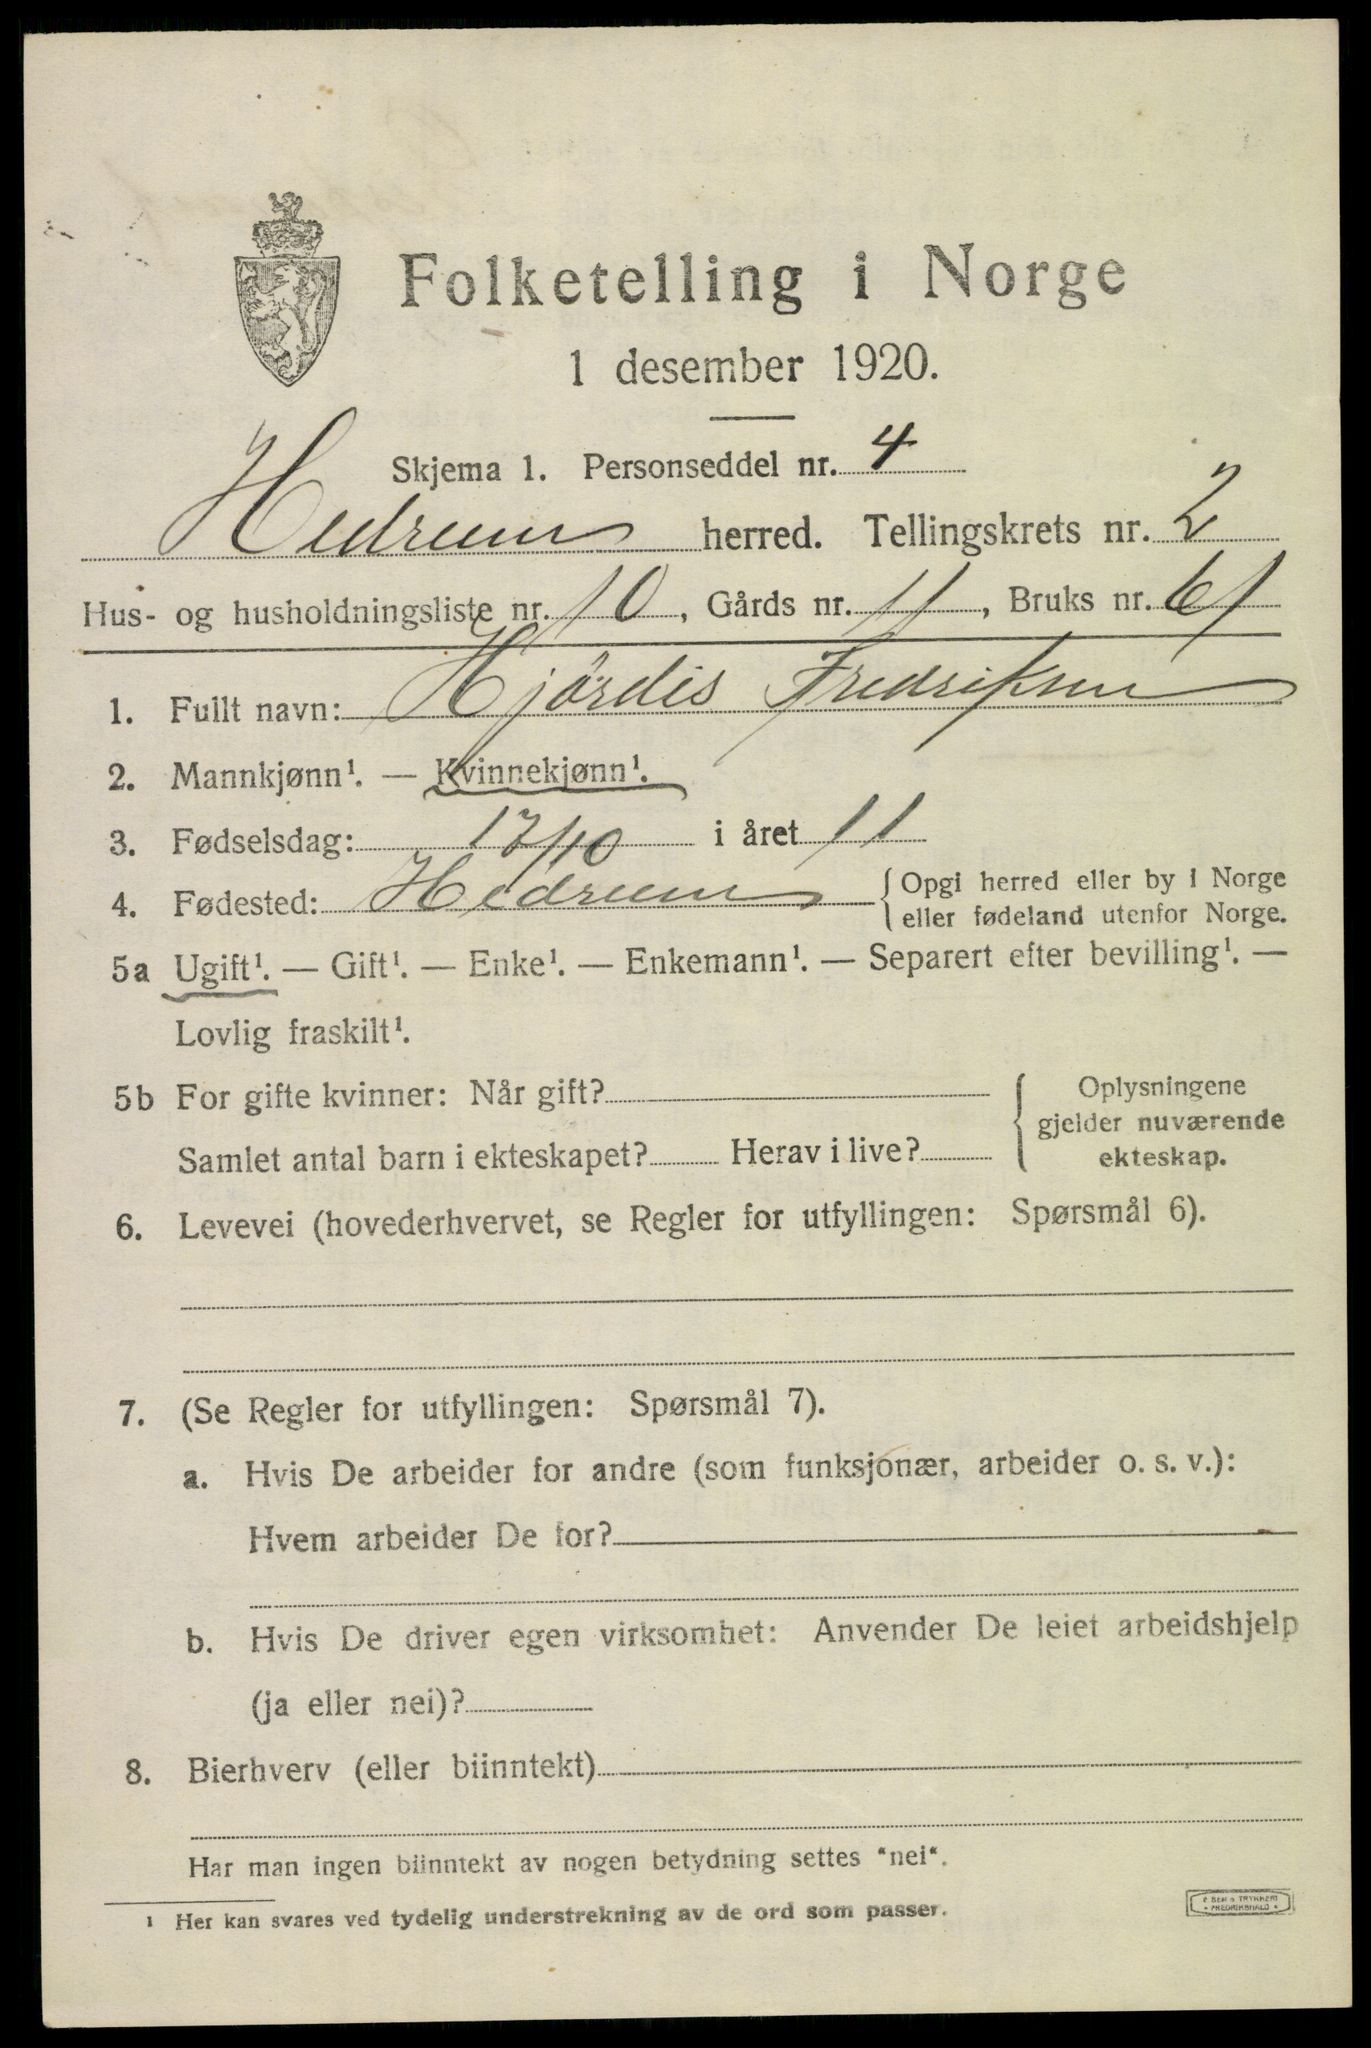 Folketelling i Norge
1 desember 1920.
Skjema 1. Personseddel nr. 4
Hedrum herred. Tellingskrets nr. 2
Hus- og husholdningsliste nr. 10, Gårds nr. 11, Bruks nr. 61
1. Fullt navn: Hjørdis Fredriksen
2. Mannkjønn¹. — Kvinnekjønn¹.
3. Fødselsdag: 17/10 i året 11
4. Fødested: Hedrum { Opgi herred eller by i Norge
eller fødeland utenfor Norge.
5a Ugift¹. — Gift¹. — Enke¹. — Enkemann¹. — Separert efter bevilling¹. —
Lovlig fraskilt¹.
5b For gifte kvinner: Når gift?
Samlet antal barn i ekteskapet? Herav i live?
{ Oplysningene
gjelder nuværende
ekteskap.
6. Levevei (hovederhvervet, se Regler for utfyllingen: Spørsmål 6).
7. (Se Regler for utfyllingen: Spørsmål 7).
a. Hvis De arbeider for andre (som funksjonær, arbeider o. s. v.):
Hvem arbeider De for?
b. Hvis De driver egen virksomhet: Anvender De leiet arbeidshjelp
(ja eller nei)?
8. Bierhverv (eller biinntekt)
Har man ingen biinntekt av nogen betydning settes "nei".
¹ Her kan svares ved tydelig understrekning av de ord som passer.
TRYKKERI
FREDRIKSHALD